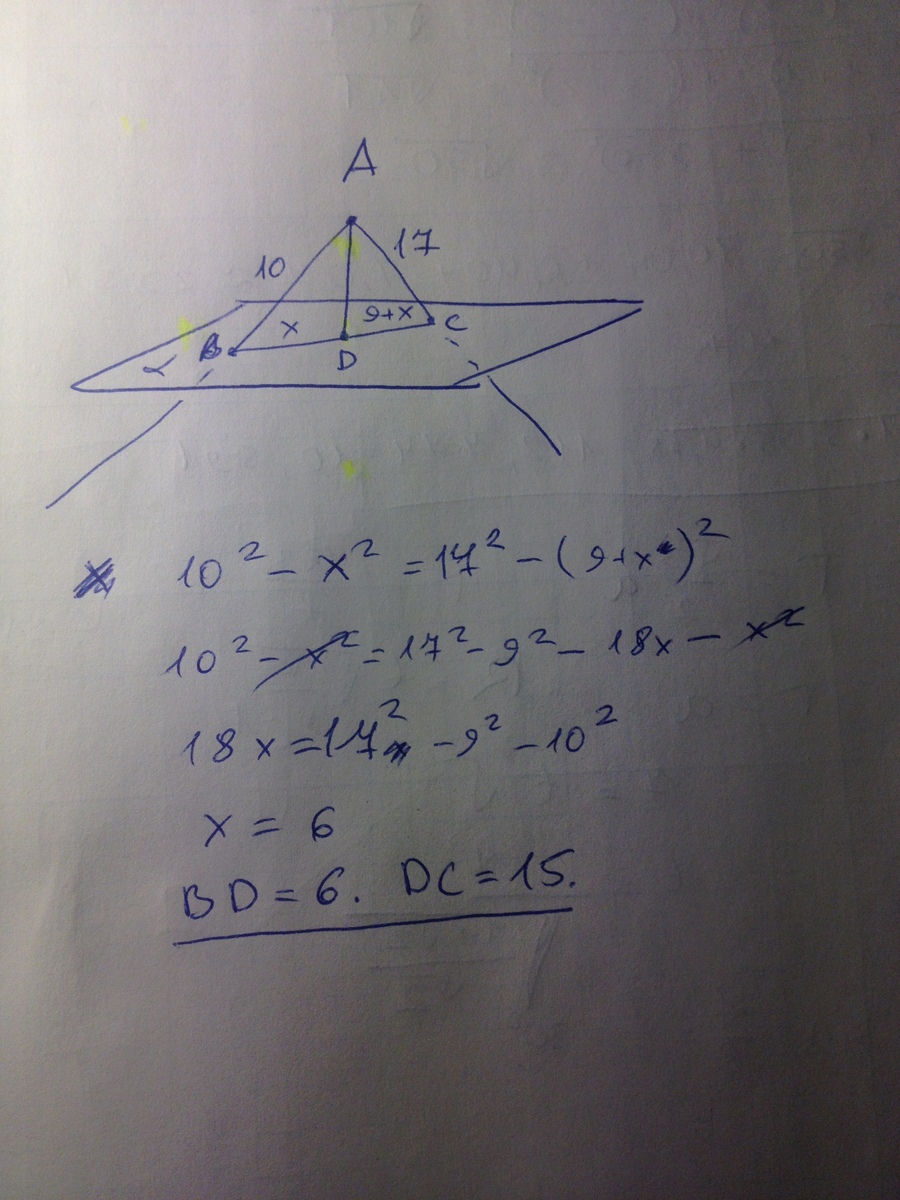 A
10
17
x
9+x
B
C
D
α
10² - x² = 17² - (9+x)²
10² - x² = 17² - 9² - 18x - x²
18x = 17² - 9² - 10²
x = 6
BD = 6. DC = 15.